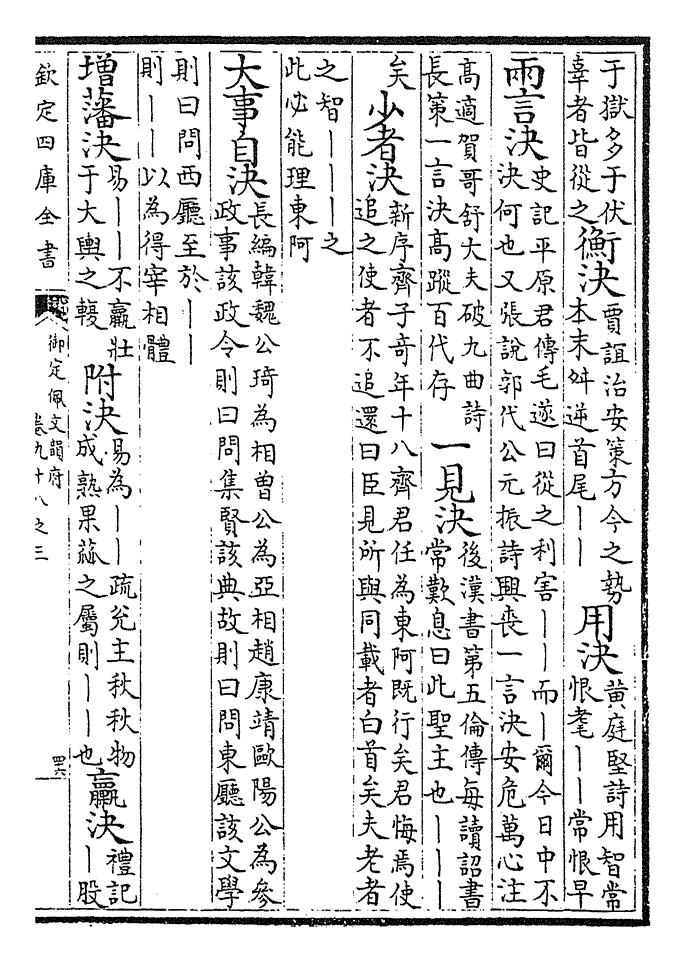 于獄多于伏
辜者皆從之
衡決
賈誼治安策方今之勢
本末舛逆首尾丨丨
用決
黄庭堅詩用智常
恨耄丨丨常恨早
兩言決
史記平原君傳毛遂曰從之利害丨丨而丨爾今日中不
決何也又張說郭代公元振詩興喪一言決安危萬心注
高適賀哥舒大夫破九曲詩
長策一言決高蹤百代存
一見決
後漢書第五倫傳每讀詔書
常歎息曰此聖主也丨丨丨
矣
少者決
新序齊子奇年十八齊君任為東阿既行矣君悔焉使
追之使者不追還曰臣見所與同載者白首矣夫老者
之智丨丨丨之
此必能理東阿
大事自決
長編韓魏公琦為相曾公為亞相趙康靖歐陽公為參
政事該政令則曰問集賢該典故則曰問東廳該文學
則曰問西廳至於丨丨
則丨丨以為得宰相體
增藩決
易丨丨不羸壯
于大輿之輹
附決
易為丨丨疏兊主秋秋物
成熟果蓏之屬則丨丨也
羸決
禮記
丨股
欽定四庫全書
御定佩文韻府
卷九十八之三
四六